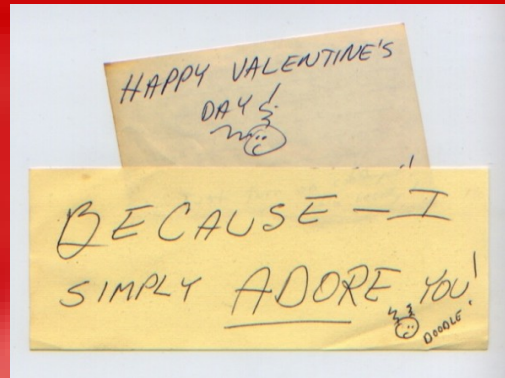 HAPPY VALENTINE'S
DAY!
BECAUSE — I
SIMPLY ADORE YOU!
DOODLE!